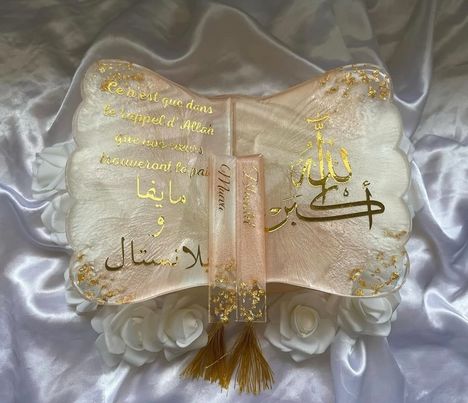 Ce n'est que dans
le rappel d'Allah
que nos cœurs
trouveront la paix
مايفا
و
بلانستال
الله
أكبر
Maïva